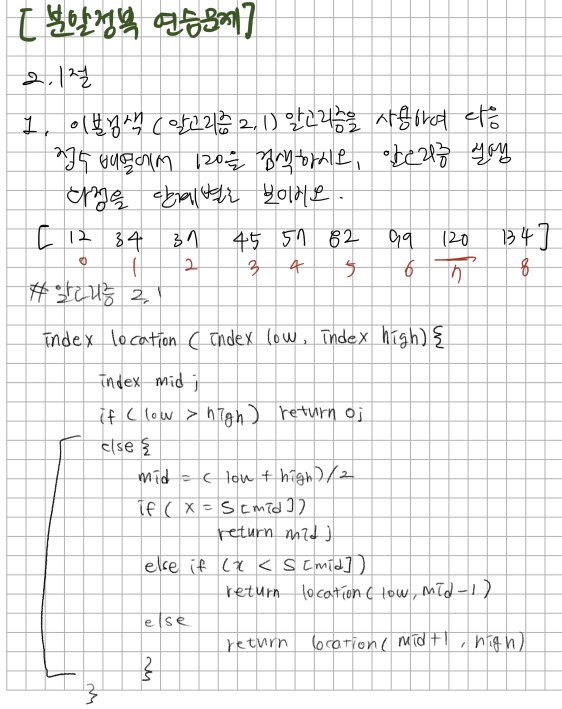 [ 분할정복 연습문제]
2.1절
1. 이분검색 (알고리즘 2.1) 알고리즘을 사용하여 다음
정수 배열에서 120을 검색하시오. 알고리즘 실행
과정을 단계별로 보이시오.
[ 12 34 37 45 57 82 99 120 134 ]
0 1 2 3 4 5 6 7 8
# 알고리즘 2.1
index location ( index low, index high) {
index mid ;
if ( low > high ) return 0;
else {
mid = ( low + high) / 2
if ( x = S [mid])
return mid ;
else if (x < S [mid])
return location( low, mid-1 )
else
return location( mid+1 , high)
}
}